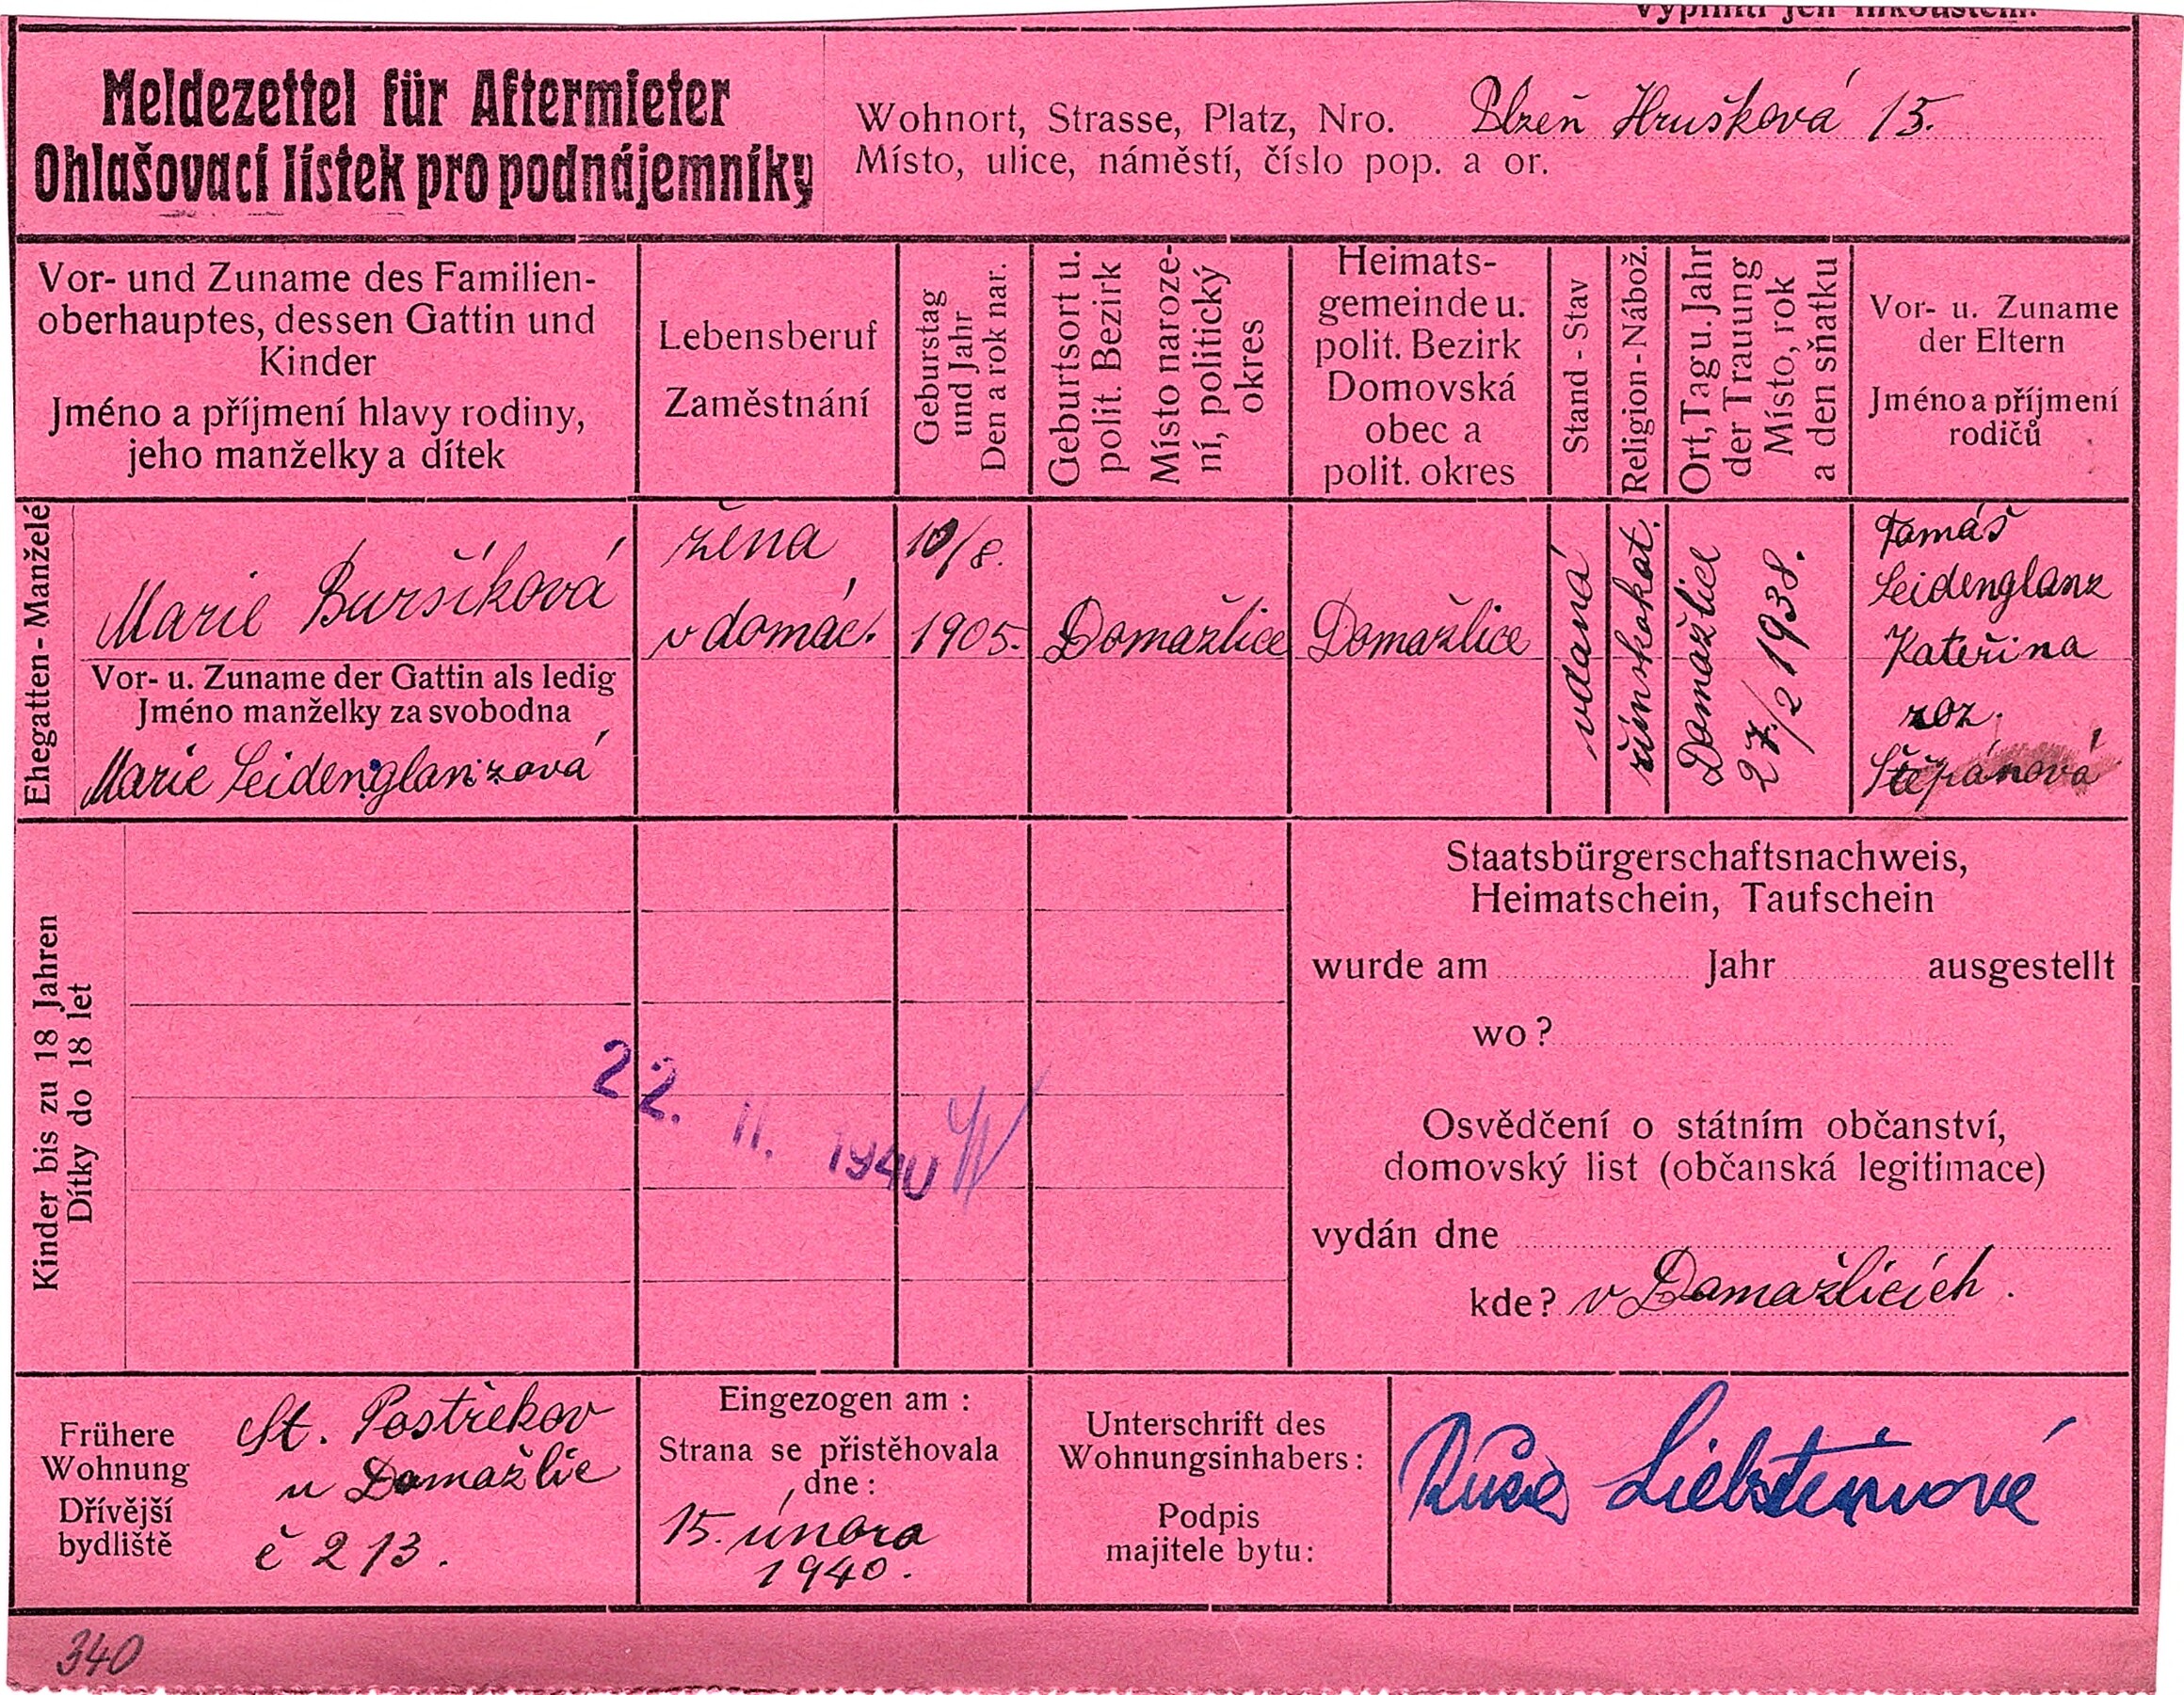 Meldezettel für Aftermieter
Ohlašovací lístek pro podnájemníky
Wohnort, Strasse, Platz, Nro. Plzeň Hrušková 15.
Místo, ulice, náměstí, číslo pop. a or.
Vor- und Zuname des Familien-
oberhauptes, dessen Gattin und
Kinder
Jméno a příjmení hlavy rodiny,
jeho manželky a dítek
Lebensberuf
Zaměstnání
Geburstag
und Jahr
Den a rok nar.
Geburtsort u.
polit. Bezirk
Místo naroze-
ní, politický
okres
Heimats-
gemeinde u.
polit. Bezirk
Domovská
obec a
polit. okres
Stand - Stav
Religion - Nábož.
Ort, Tag u. Jahr
der Trauung
Místo, rok
a den sňatku
Vor- u. Zuname
der Eltern
Jméno a příjmení
rodičů
Ehegatten - Manželé
Marie Buršíková
žena
v domác.
10/8.
1905.
Domažlice
Domažlice
vdaná
římskokat.
Domažlice
27./2 1938.
Tomáš
Seidenglanz
Kateřina
roz.
Štěpánová
Vor- u. Zuname der Gattin als ledig
Jméno manželky za svobodna
Marie Seidenglanzová
Kinder bis zu 18 Jahren
Dítky do 18 let
22. II. 1940
Staatsbürgerschaftsnachweis,
Heimatschein, Taufschein
wurde am Jahr ausgestellt
wo?
Osvědčení o státním občanství,
domovský list (občanská legitimace)
vydán dne
kde? v Domažlicích.
Frühere
Wohnung
Dřívější
bydliště
St. Postřekov
u Domažlic
č 213.
Eingezogen am :
Strana se přistěhovala
dne :
15. února
1940.
Unterschrift des
Wohnungsinhabers :
Podpis
majitele bytu :
340